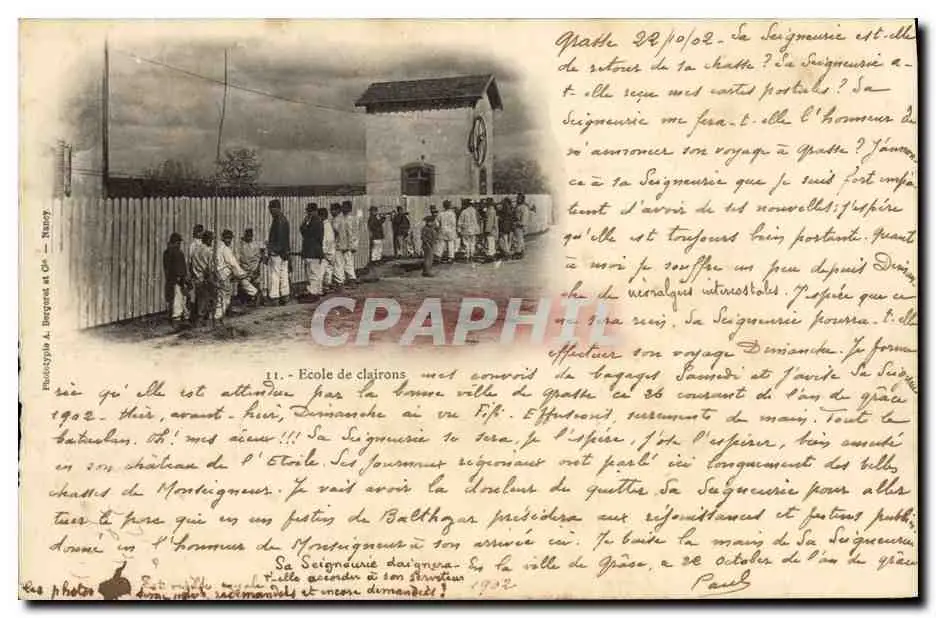 Grasse 22/10/02 - Sa Seigneurie est-elle
de retour de sa chasse? Sa Seigneurie a-
t-elle reçu mes cartes postales? Sa
Seigneurie me fera-t-elle l'honneur de
m'annoncer son voyage à Grasse? J'annon-
ce à sa Seigneurie que je suis fort impa-
tient d'avoir de ses nouvelles; j'espère
qu'elle est toujours bien portante. Quant
à moi je souffre un peu depuis Diman-
che de névralgies intercostales. J'espère que ce
ne sera rien. Sa Seigneurie pourra-t-elle
effectuer son voyage Dimanche. Je forme
11. - Ecole de clairons
mes convois de bagages Samedi et j'avise Sa Seigneu
rie qu'elle est attendue par la bonne ville de Grasse ce 26 courant de l'an de grâce
1902 - Hier, avant-hier, Dimanche ai vu Fifi. Effusions, serrements de main. Tout le
. Oh! mes aïeux!!! Sa Seigneurie se sera, je l'espère, j'ose l'espérer, bien amusée
en son château de l'Etoile. Les journaux régionaux ont parlé ici longuement des belles
chasses de Monseigneur. Je vais avoir la douleur de quitter Sa Seigneurie pour aller
tuer le porc qui en un festin de Balthazar présidera aux réjouissances et festins publi
donné en l'honneur de Monseigneur à son arrivée ici. Je baise la main de Sa Seigneurie
Sa Seigneurie daignera-
En la ville de Grâsse, ce 22 October de l'an de grâce
t-elle accorder à son serviteur
1902
Paul
les photos
récemment et encore demandées?
Phototypie A. Bergeret et Cie. — Nancy
CPAPHIL